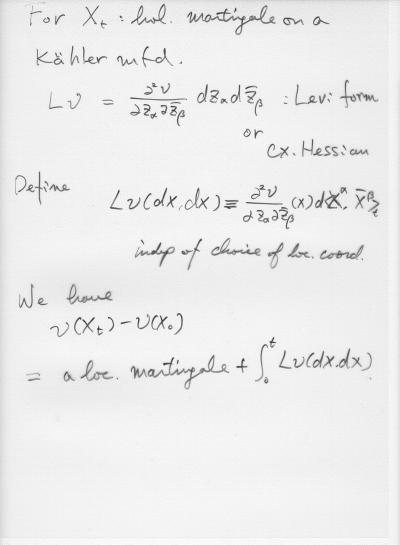 For Xₜ : hol. martingale on a
Kähler mfd.
Lv = ∂²v/∂z_α∂z̄_β dz_α dz̄_β : Levi form
or
cx. Hessian
Define
Lv(dX,dX) ≡ ∂²v/∂z_α∂z̄_β (X) d<X^α, X̄^β>ₜ
indep of choice of loc. coord.
We have
v(Xₜ) – v(X₀)
= a loc. martingale + ∫₀ᵗ Lv(dX.dX)